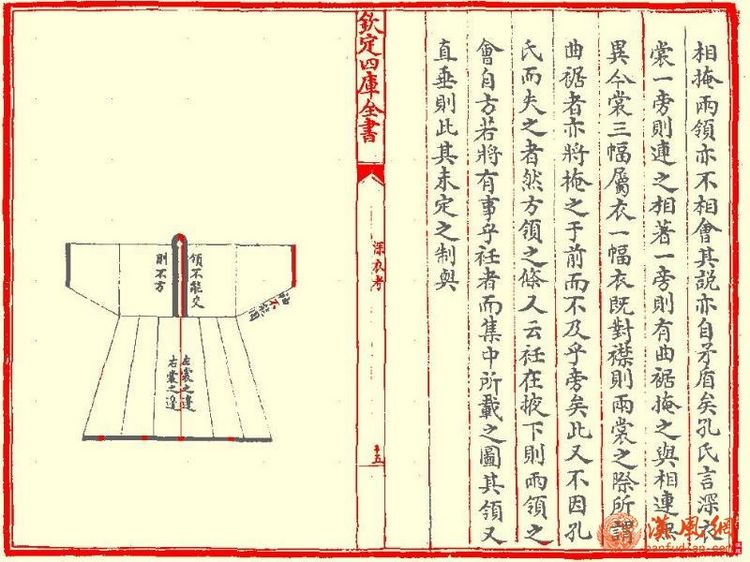 相掩兩領亦不相會其說亦自矛盾矣孔氏言深衣
裳一旁則連之相著一旁則有曲裾掩之與相連無
異今裳三幅屬衣一幅衣既對襟則兩裳之際所謂
曲裾者亦將掩之于前而不及乎旁矣此又不因孔
氏而失之者然方領之條又云衽在掖下則兩領之
會自方若將有事乎衽者而集中所載之圖其領又
直垂則此其未定之制與
欽定四庫全書
深衣考
十五
領不能交
則不方
左裳之邊
右裳之邊
漢風網